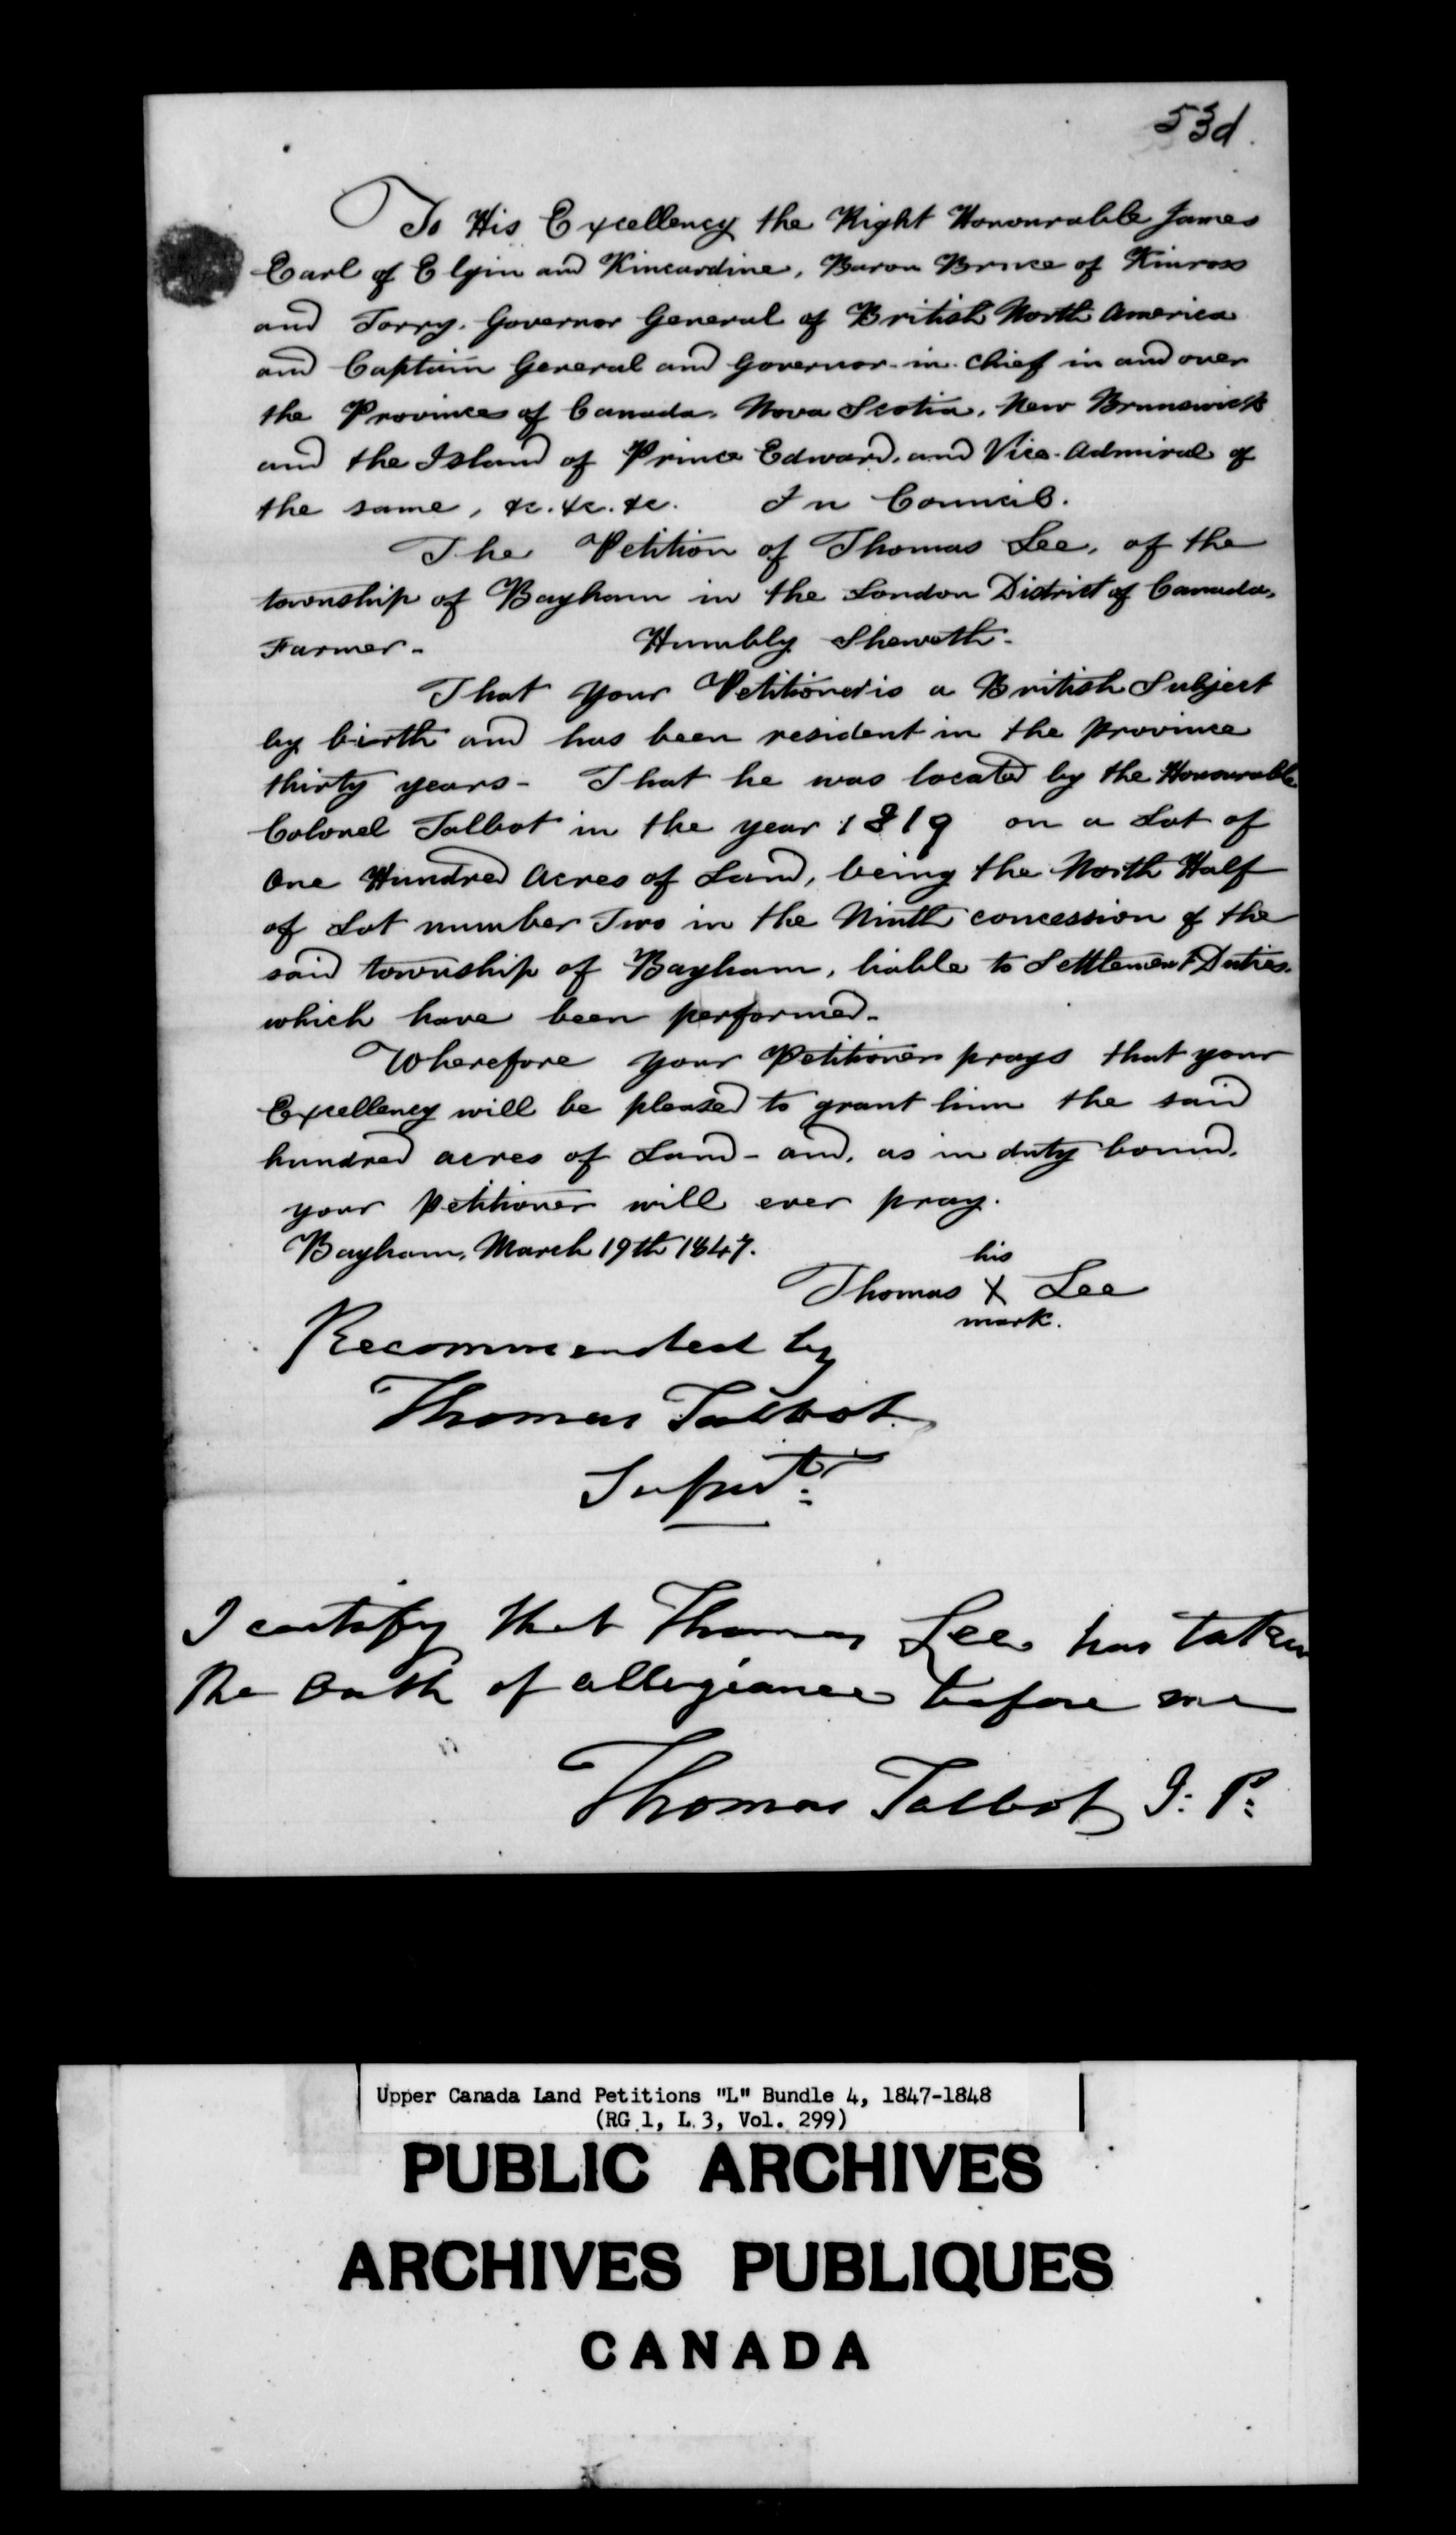 53d.
To His Excellency the Right Honourable James
Earl of Elgin and Kincardine, Baron Bruce of Kinross
and Torry. Governor General of British North America
and Captain General and Governor-in-Chief in and over
the Provinces of Canada, Nova Scotia, New Brunswick
and the Island of Prince Edward, and Vice-Admiral of
the same, &c. &c. &c. In Council.
The Petition of Thomas Lee, of the
township of Bayham in the London District of Canada,
Farmer- Humbly Sheweth-
That your Petitioner is a British Subject
by birth and has been resident in the province
thirty years- That he was located by the Honourable
Colonel Talbot in the year 1819 on a Lot of
One Hundred Acres of Land, being the North Half
of Lot number Two in the Ninth concession of the
said township of Bayham, liable to Settlement Duties.
which have been performed-
Wherefore your Petitioner prays that your
Excellency will be pleased to grant him the said
hundred acres of Land- and, as in duty bound,
your Petitioner will ever pray.
Bayham, March 19th 1847.
his
Thomas X Lee
mark.
Recommended by
Thomas Talbot
Supdt:
I certify that Thomas Lee has taken
the Oath of allegiance before me
Thomas Talbot J: P:
Upper Canada Land Petitions "L" Bundle 4, 1847-1848
(RG 1, L 3, Vol. 299)
PUBLIC ARCHIVES
ARCHIVES PUBLIQUES
CANADA